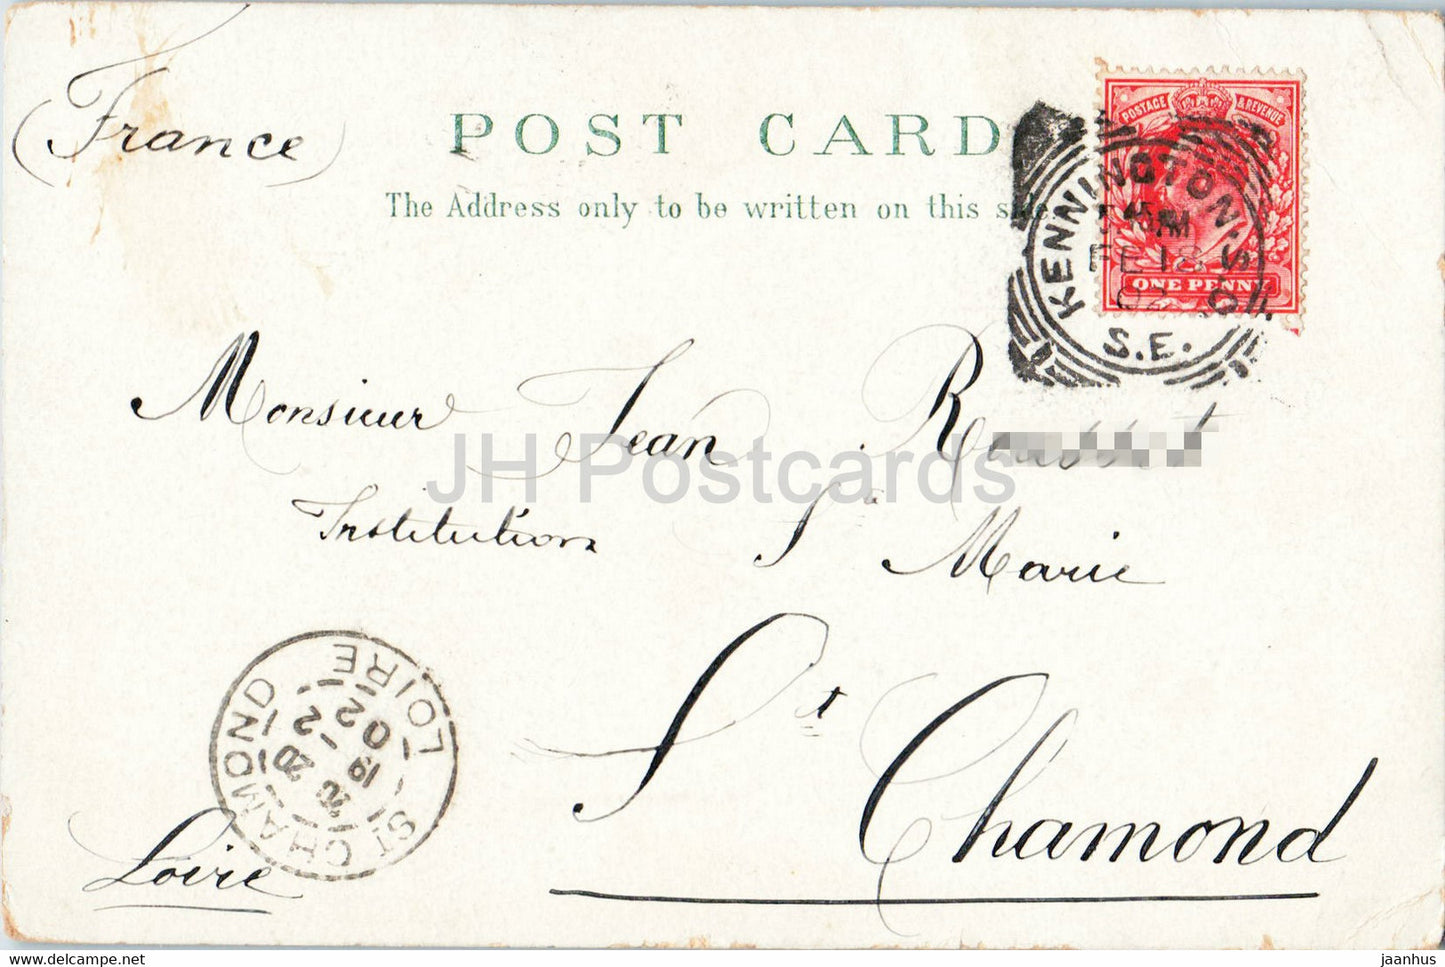 (France)
POST CARD
The Address only to be written on this side
POSTAGE & REVENUE
ONE PENNY
KENNINGTON. S.O.
5 45 PM
FE 18
02
S.E.
Monsieur Jean
Institution Sᵗᵃ Marie
Sᵗ Chamond
Loire
ST CHAMOND
LOIRE
20 - 2
02
JH Postcards
jaanhus